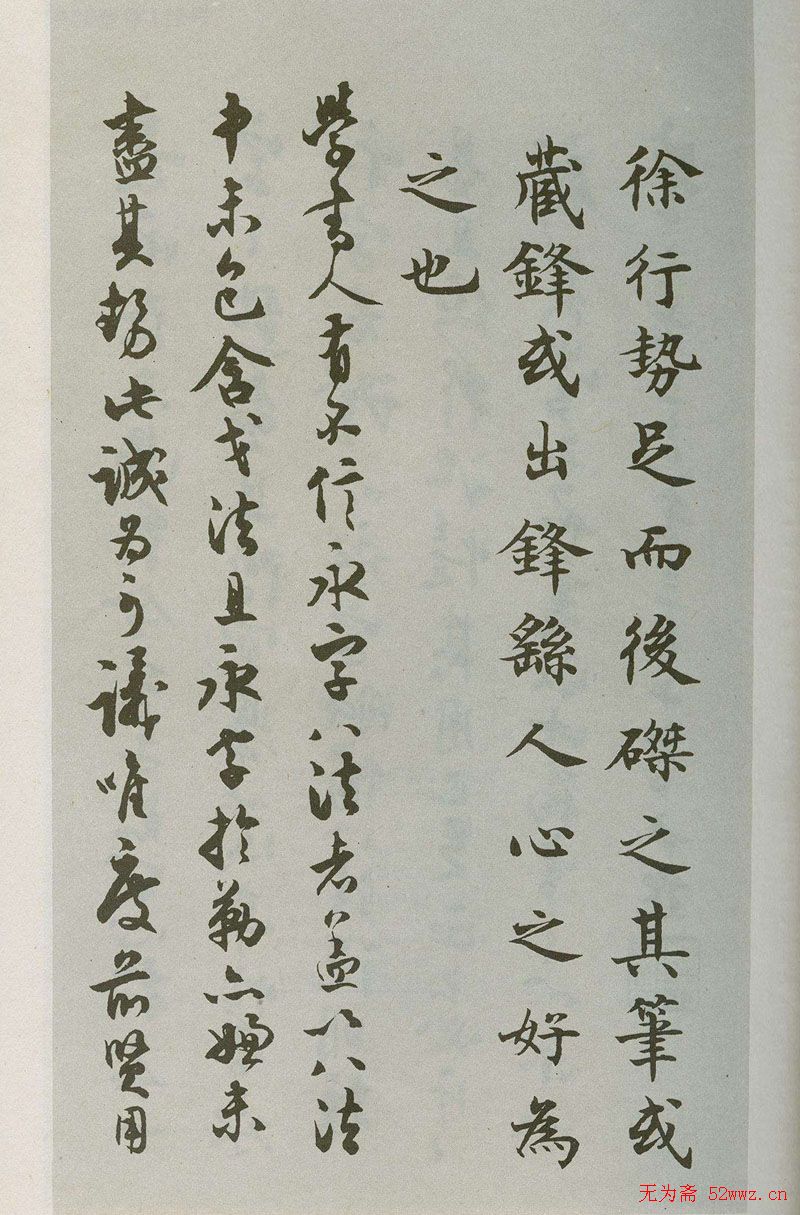 徐行勢足而後磔之其筆或
藏鋒或出鋒繇人心之好為
之也
學書人有不信永字八法者蓋以八法
中未包含戈法且永字於勒亦嫌未
盡其勢此誠為可議唯度前賢用
无为斋 52wwz.cn